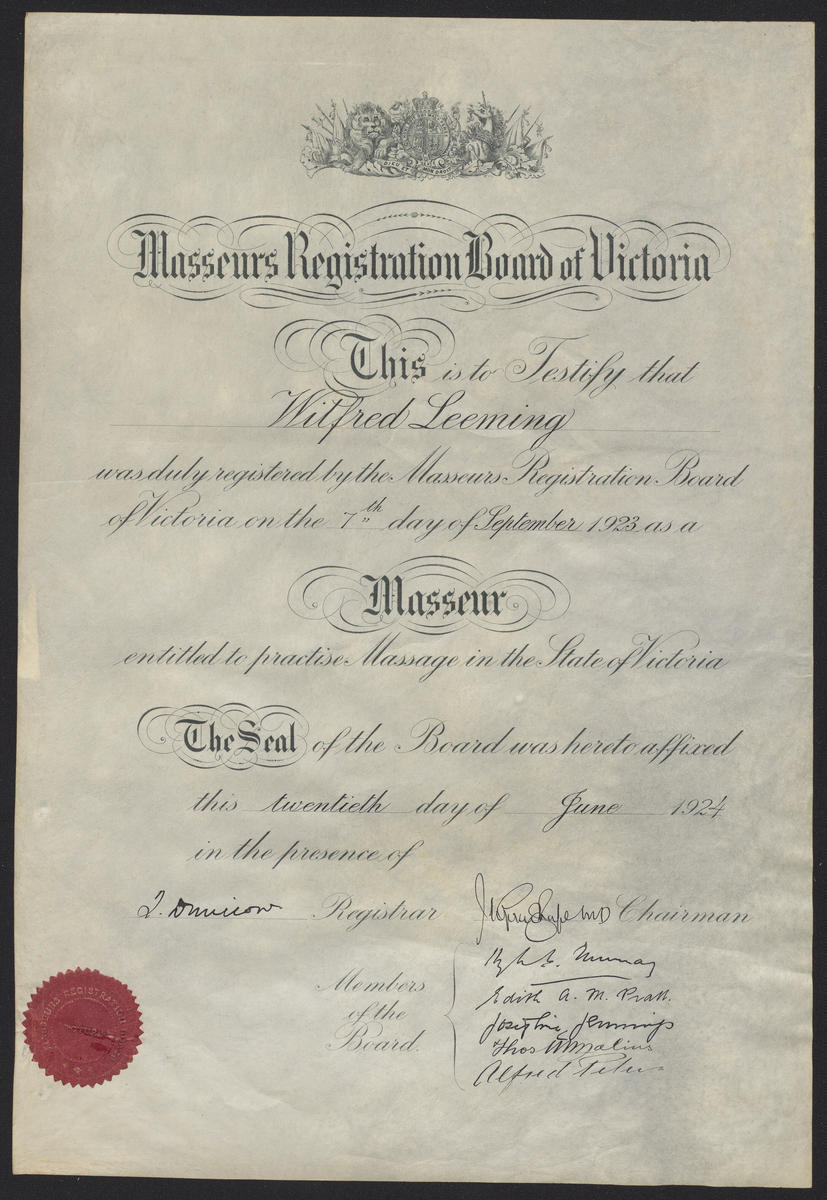 DIEU ET MON DROIT
Masseurs Registration Board of Victoria
This is to Testify that
Wilfred Leeming
was duly registered by the Masseurs Registration Board
of Victoria on the 7th day of September 1923 as a
Masseur
entitled to practise Massage in the State of Victoria
The Seal of the Board was hereto affixed
this twentieth day of June 1924
in the presence of
Registrar Chairman
Members
of the
Board.
Murray
Edith A. M. Pratt.
Josephine Jennings
Thos
Alfred Peters
MASSEURS REGISTRATION BOARD